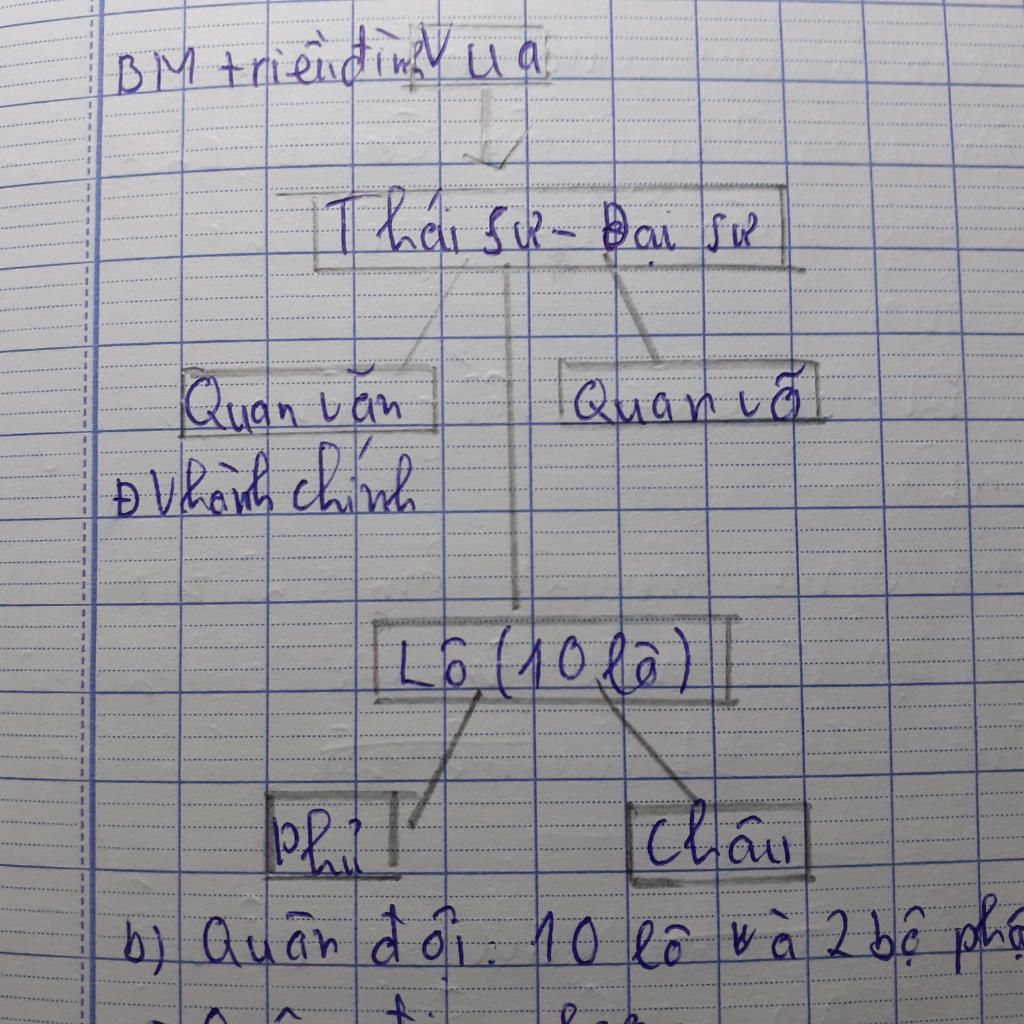 BM triều đình Vua
Thái sư - Đại sư
Quan văn Quan võ
ĐV hành chính
Lô (10 lô)
Phủ Châu
b) Quân đội: 10 lô và 2 bộ